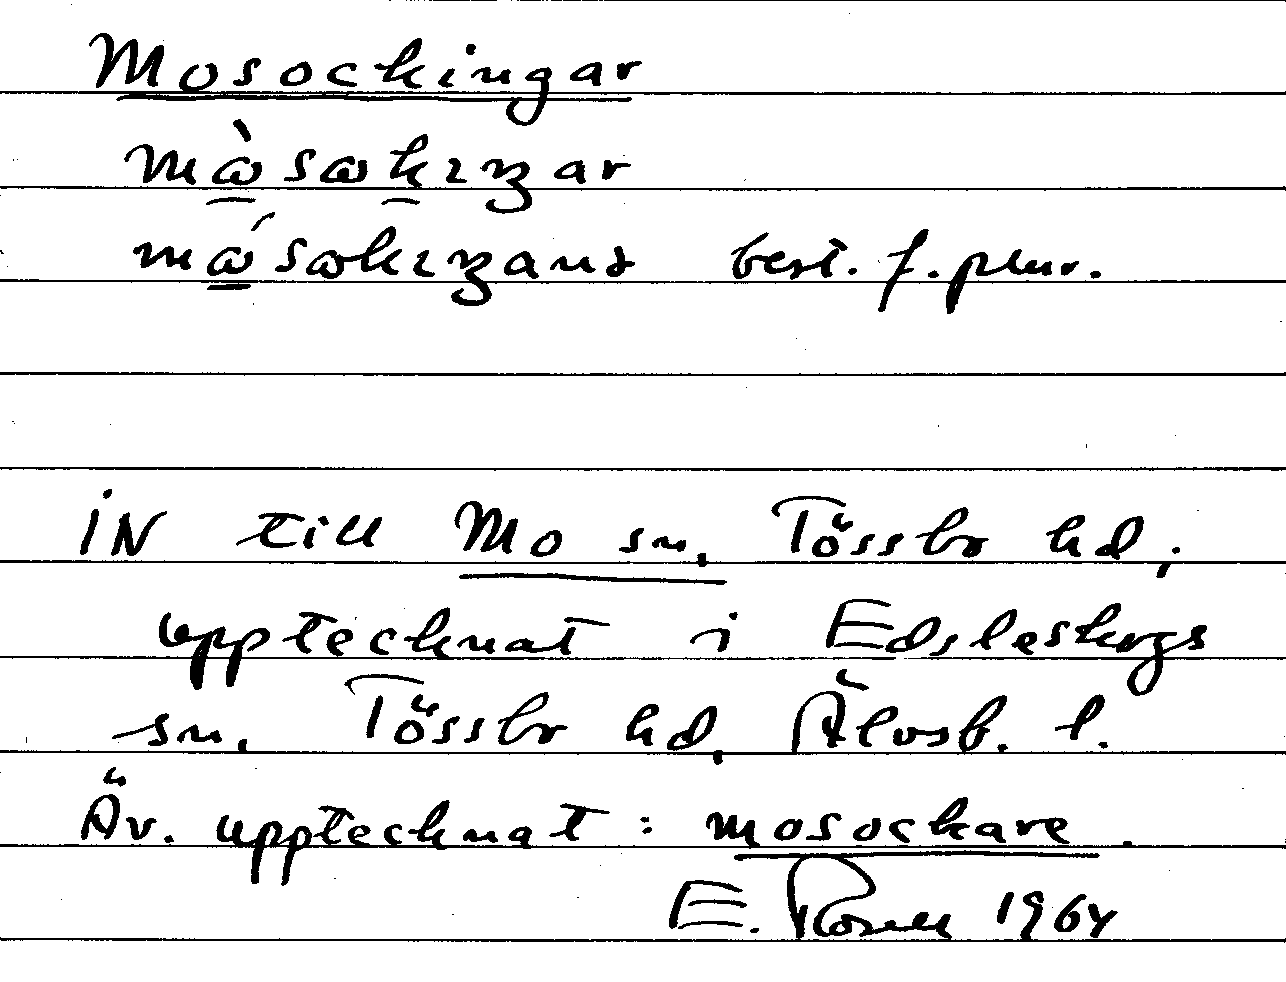 Mosockingar
best. f. plur.
IN till Mo sn, Tössbo hd,
upptecknat i Edsleskogs
sn, Tössbo hd, Älvsb. l.
Äv. upptecknat: mosockare.
E. Rosell 1964